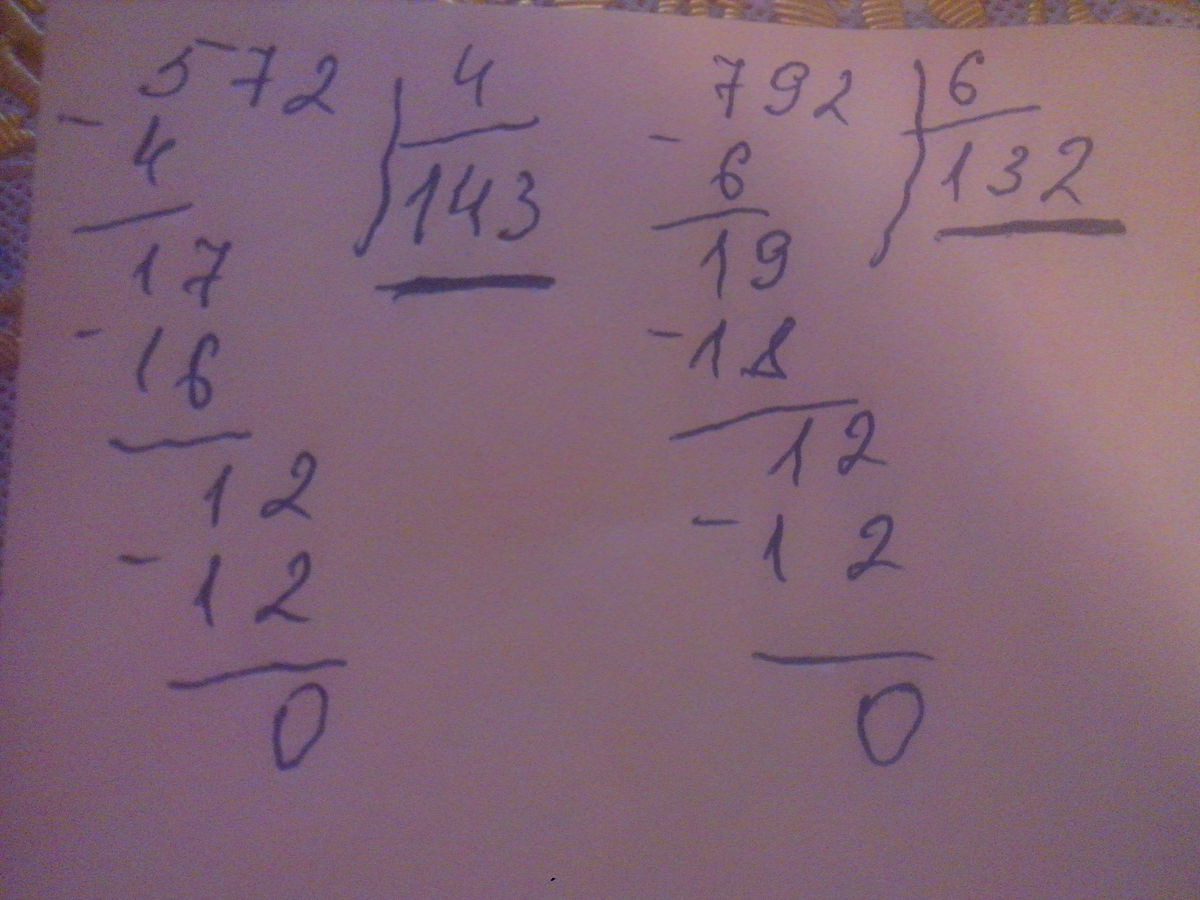 572 4
- 4 143
17
- 16
12
- 12
0
792 6
- 6 132
19
- 18
12
- 12
0